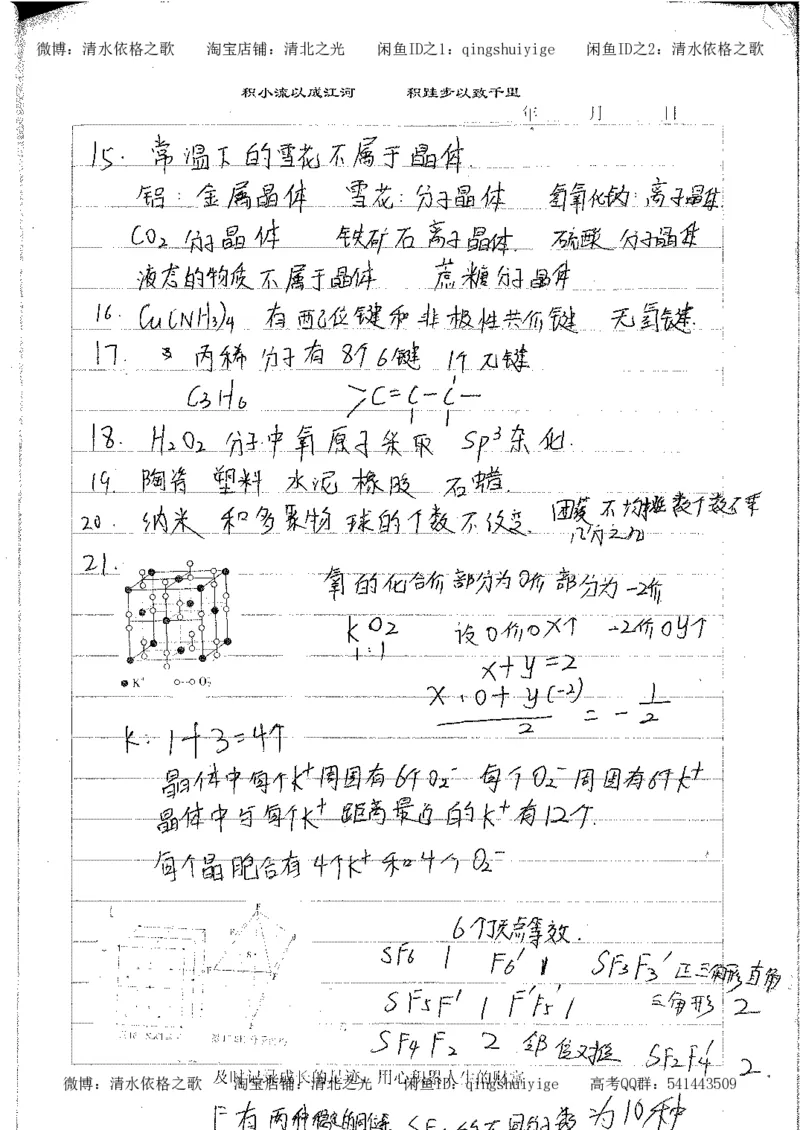 微博：清水依格之歌 淘宝店铺：清北之光 闲鱼ID之1：qingshuiyige 闲鱼ID之2：清水依格之歌
积小流以成江河 积跬步以致千里
年 月 日
15. 常温下的雪花不属于晶体.
铝：金属晶体 雪花：分子晶体 氢氧化钠：离子晶体
CO2 分子晶体 铁矿石 离子晶体. 硫酸 分子晶体
液态的物质不属于晶体 蔗糖分子晶体
16. Cu(NH3)4 有配位键和非极性共价键 无氢键.
17. 丙稀分子有8个6键 1个π键
C3H6 >C=C-C-
18. H2O2 分子中氧原子采取 sp3杂化.
19. 陶瓷 塑料 水泥 橡胶 石蜡.
20. 纳米 和多聚物 球的个数不改变. 不均摊 数个数不乘
几分之几
21.
氧的化合价部分为0价 部分为-2价
KO2 设0价O X个 -2价O y个
1:1
x+y=2
x·0+y(-2) / 2 = - 1/2
K+ O2-
K: 1+3=4个
晶体中每个K+周围有6个O2- 每个O2-周围有6个K+
晶体中与每个K+距离最近的K+有12个.
每个晶胞含有4个K+和4个O2-
6个顶点等效.
SF6 1 F6' 1 SF3F3' 正三角形 直角
SF5F' 1 F'F5' 1 三角形 2
SF4F2 2 邻位对位 SF2F4' 2.
及时记录成长的足迹，用心积累人生的财富
微博：清水依格之歌 淘宝店铺：清北之光 闲鱼ID：qingshuiyige 高考QQ群：541443509
F有两种 SF6 的不同分子数为10种